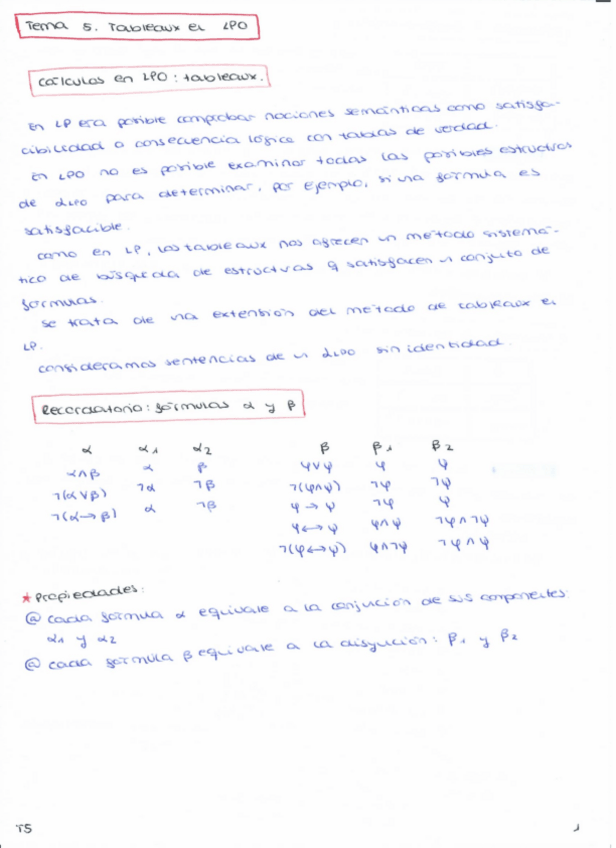 Tema 5. Tableaux en LPO
Cálculos en LPO: tableaux.
En LP era posible comprobar nociones semánticas como satisfa-
cibilidad o consecuencia lógica con tablas de verdad.
En LPO no es posible examinar todas las posibles estructuras
de LLPO para determinar, por ejemplo, si una fórmula es
satisfacible.
Como en LP, los tableaux nos ofrecen un método sistemá-
tico de búsqueda de estructuras q satisfacen un conjuto de
fórmulas.
Se trata de una extensión del método de tableaux en
LP.
Consideramos sentencias de un LLPO sin identidad.
Recordatorio: fórmulas α y β
α α1 α2 β β1 β2
α∧β α β φ∨ψ φ ψ
¬(α∨β) ¬α ¬β ¬(φ∧ψ) ¬φ ¬ψ
¬(α→β) α ¬β φ→ψ ¬φ ψ
φ↔ψ φ∧ψ ¬φ∧¬ψ
¬(φ↔ψ) φ∧¬ψ ¬φ∧ψ
* Propiedades:
@ cada fórmula α equivale a la conjución de sus componentes:
α1 y α2
@ cada fórmula β equivale a la disyución: β1 y β2
T5 1